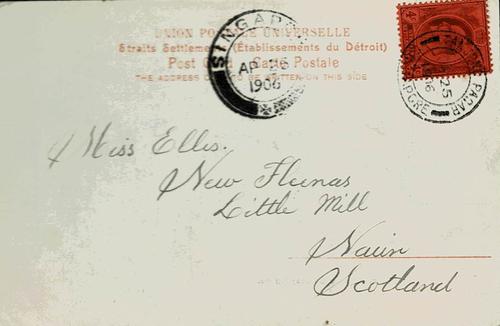 UNION POSTALE UNIVERSELLE
Straits Settlements (Établissements du Détroit)
Post Card Carte Postale
THE ADDRESS ONLY TO BE WRITTEN ON THIS SIDE
SINGAPORE
AP 1906
PAGAR
Miss Ellis.
New Fleenas
Little Mill
Nairn
Scotland